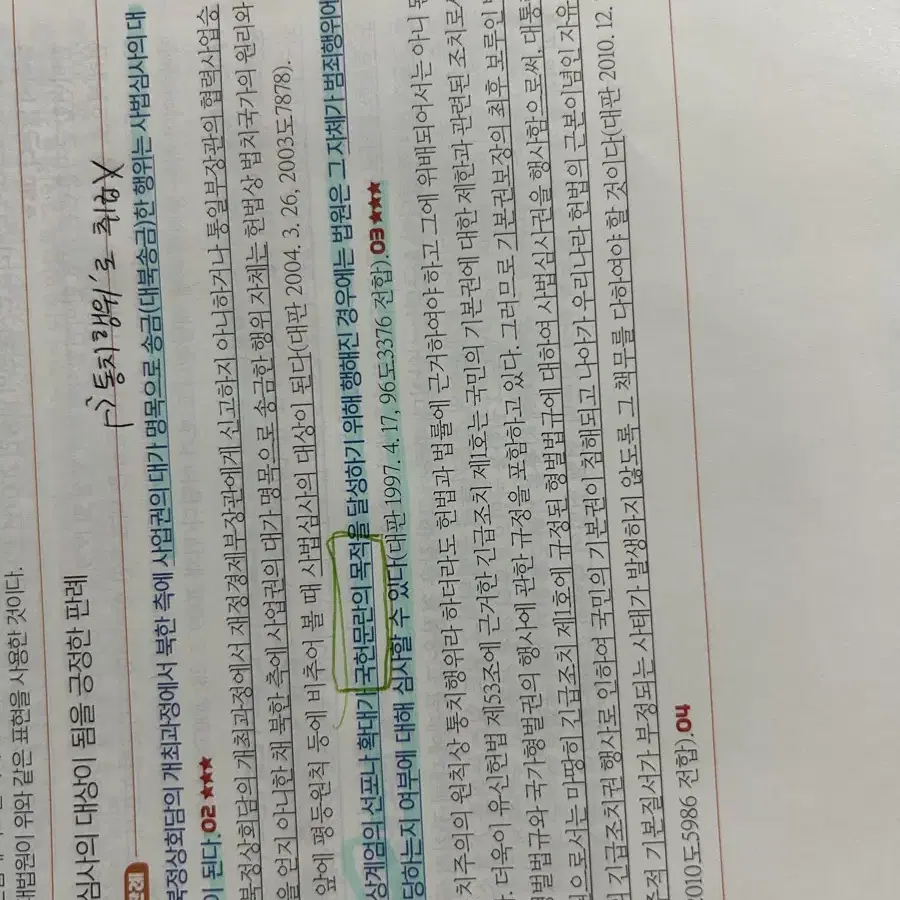 대법원이 위와 같은 표현을 사용한 것이다.
심사의 대상이 됨을 긍정한 판례
↱'통치행위'로 취급X
판례
북정상회담의 개최과정에서 북한 측에 사업권의 대가 명목으로 송금(대북송금)한 행위는 사법심사의 대
이 된다.02 ★★★
북정상회담의 개최과정에서 재정경제부장관에게 신고하지 아니하거나 통일부장관의 협력사업승
을 얻지 아니한 채 북한 측에 사업권의 대가 명목으로 송금한 행위 자체는 헌법상 법치국가의 원리와
앞에 평등원칙 등에 비추어 볼 때 사법심사의 대상이 된다(대판 2004. 3. 26, 2003도7878).
상계엄의 선포나 확대가 국헌문란의 목적을 달성하기 위해 행해진 경우에는 법원은 그 자체가 범죄행위에
당하는지 여부에 대해 심사할 수 있다(대판 1997. 4. 17, 96도3376 전합).03 ★★★
치주의의 원칙상 통치행위라 하더라도 헌법과 법률에 근거하여야 하고 그에 위배되어서는 아니
. 더욱이 유신헌법 제53조에 근거한 긴급조치 제1호는 국민의 기본권에 대한 제한과 관련된 조치로
형벌법규와 국가형벌권의 행사에 관한 규정을 포함하고 있다. 그러므로 기본권보장의 최후 보루인
원으로서는 마땅히 긴급조치 제1호에 규정된 형벌법규에 대하여 사법심사권을 행사함으로써, 대통
의 긴급조치권 행사로 인하여 국민의 기본권이 침해되고 나아가 우리나라 헌법의 근본이념인 자유
주적 기본질서가 부정되는 사태가 발생하지 않도록 그 책무를 다하여야 할 것이다(대판 2010. 12.
2010도5986 전합).04